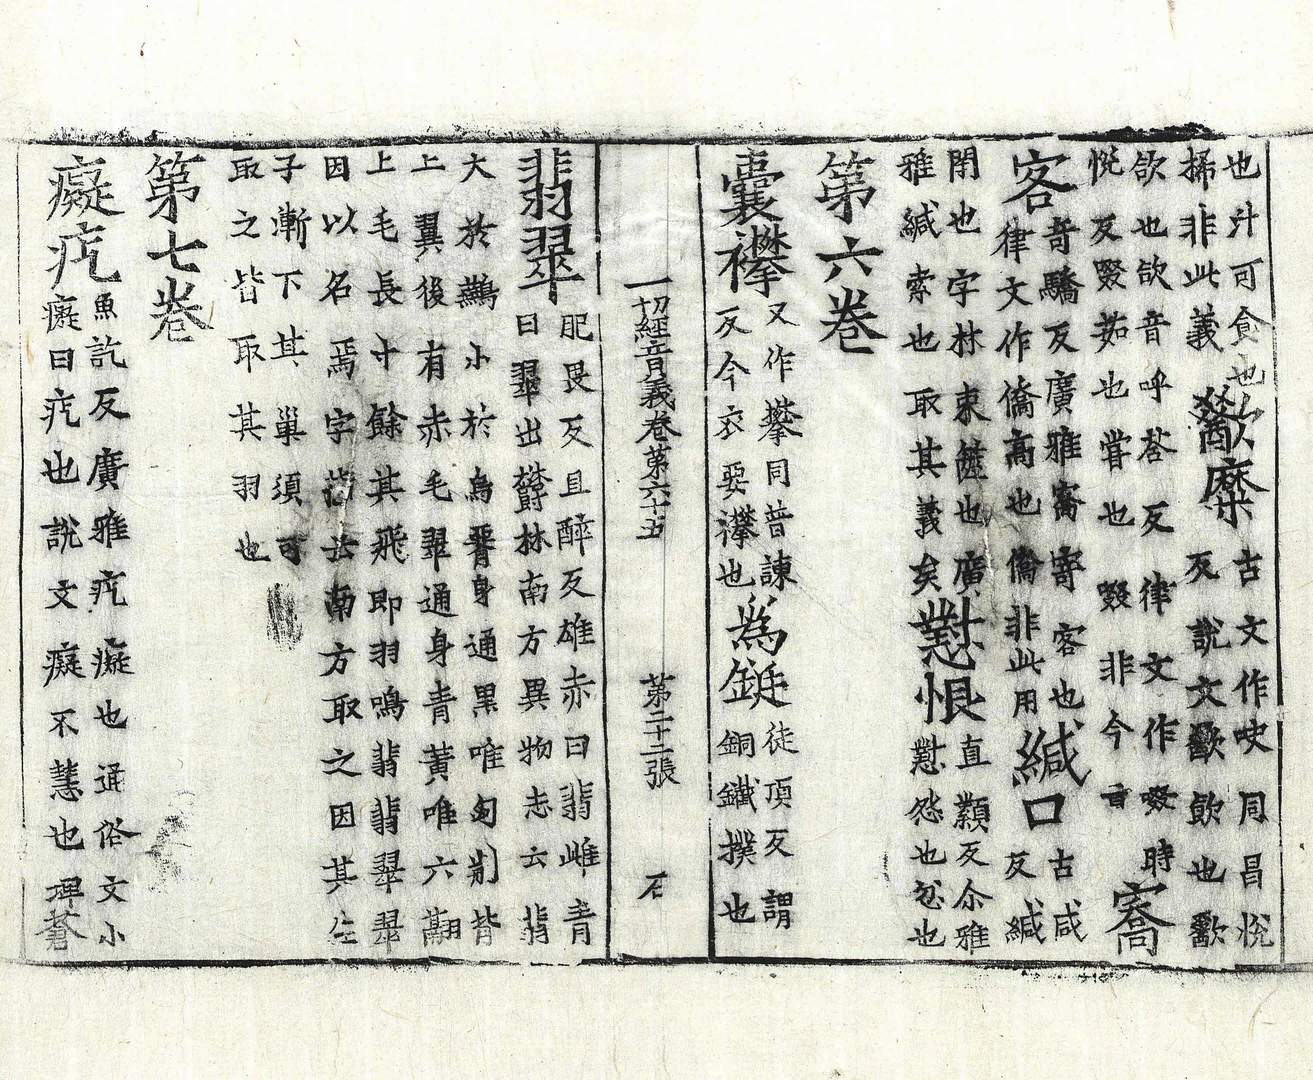 也廾可食也
掃非此義
歠麋
古文作吷同昌悅
反說文歠歠飲也歠
欲也欱音呼荅反律文作啜時
悅反啜茹也嘗也啜非今音
寄
客
奇驕反廣雅寄寄客也
律文作僑高也僑非此用
緘口
古咸
反緘
閉也字林束篋也廣
雅緘索也取其義矣
懟恨
直纇反尒雅
懟怨也忿也
第六卷
囊襻
又作攀同普諫
反今衣要襻也
為鋌
徒頂反謂
銅鐵撲也
一切經音義卷第六十五
第二十二張
石
翡翠
肥畏反且醉反雄赤曰翡雌青
曰翠出欝林南方異物志云翡
大於鷰小於烏脊身通黑唯匈前背
上翼後有赤毛翠通身青黃唯六翮
上毛長寸餘其飛即羽鳴翡翡翠翠
因以名焉字㫖云南方取之因其生
子漸下其巢須可
取之皆取其羽也
第七卷
癡疙
魚訖反廣雅疙癡也通俗文小
癡曰疙也說文癡不慧也埤蒼